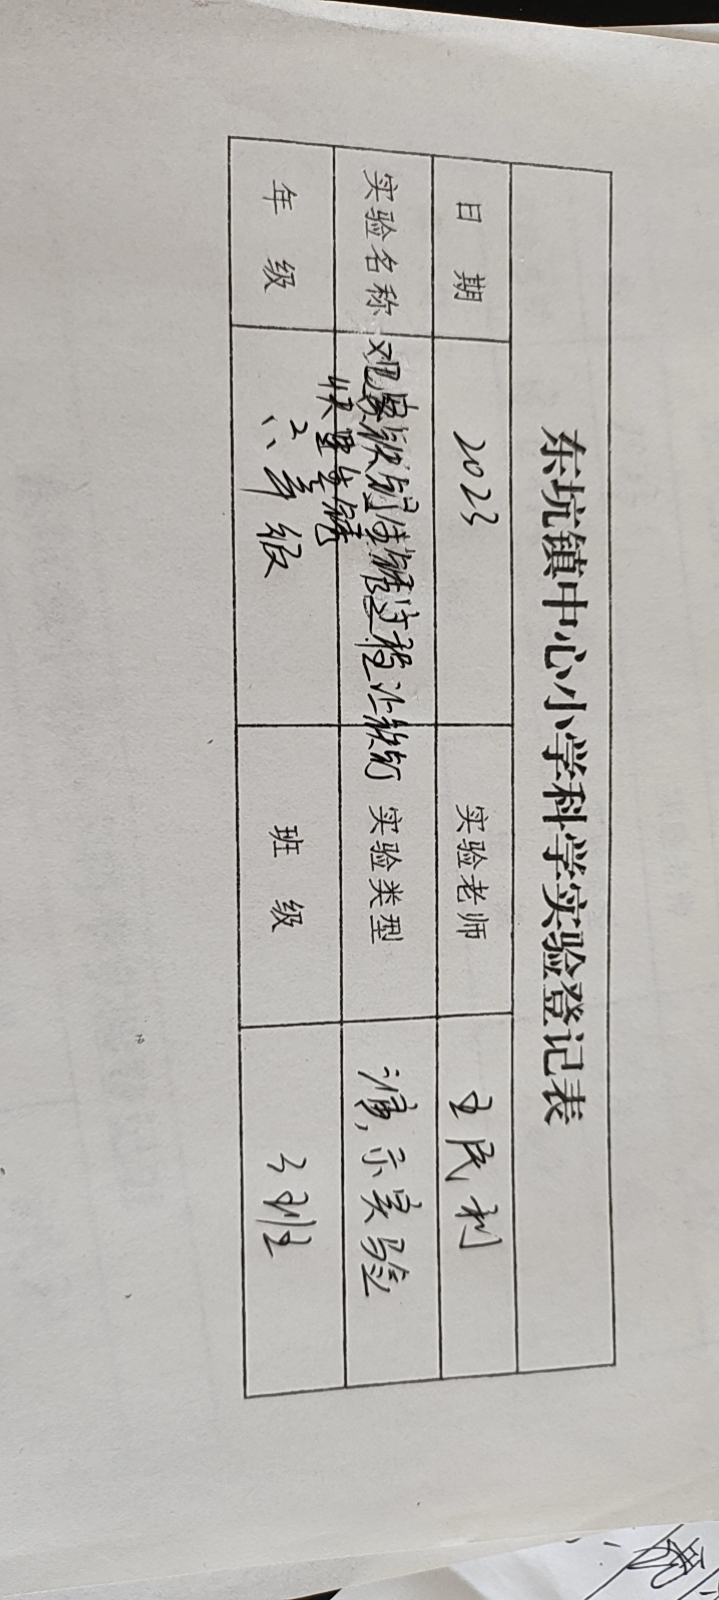 东坑镇中心小学科学实验登记表
日 期 2023 实验老师 王民利
实验名称 观察铁钉生锈过程让铁钉 实验类型 演示实验
快速生锈
年 级 六年级 班 级 3班